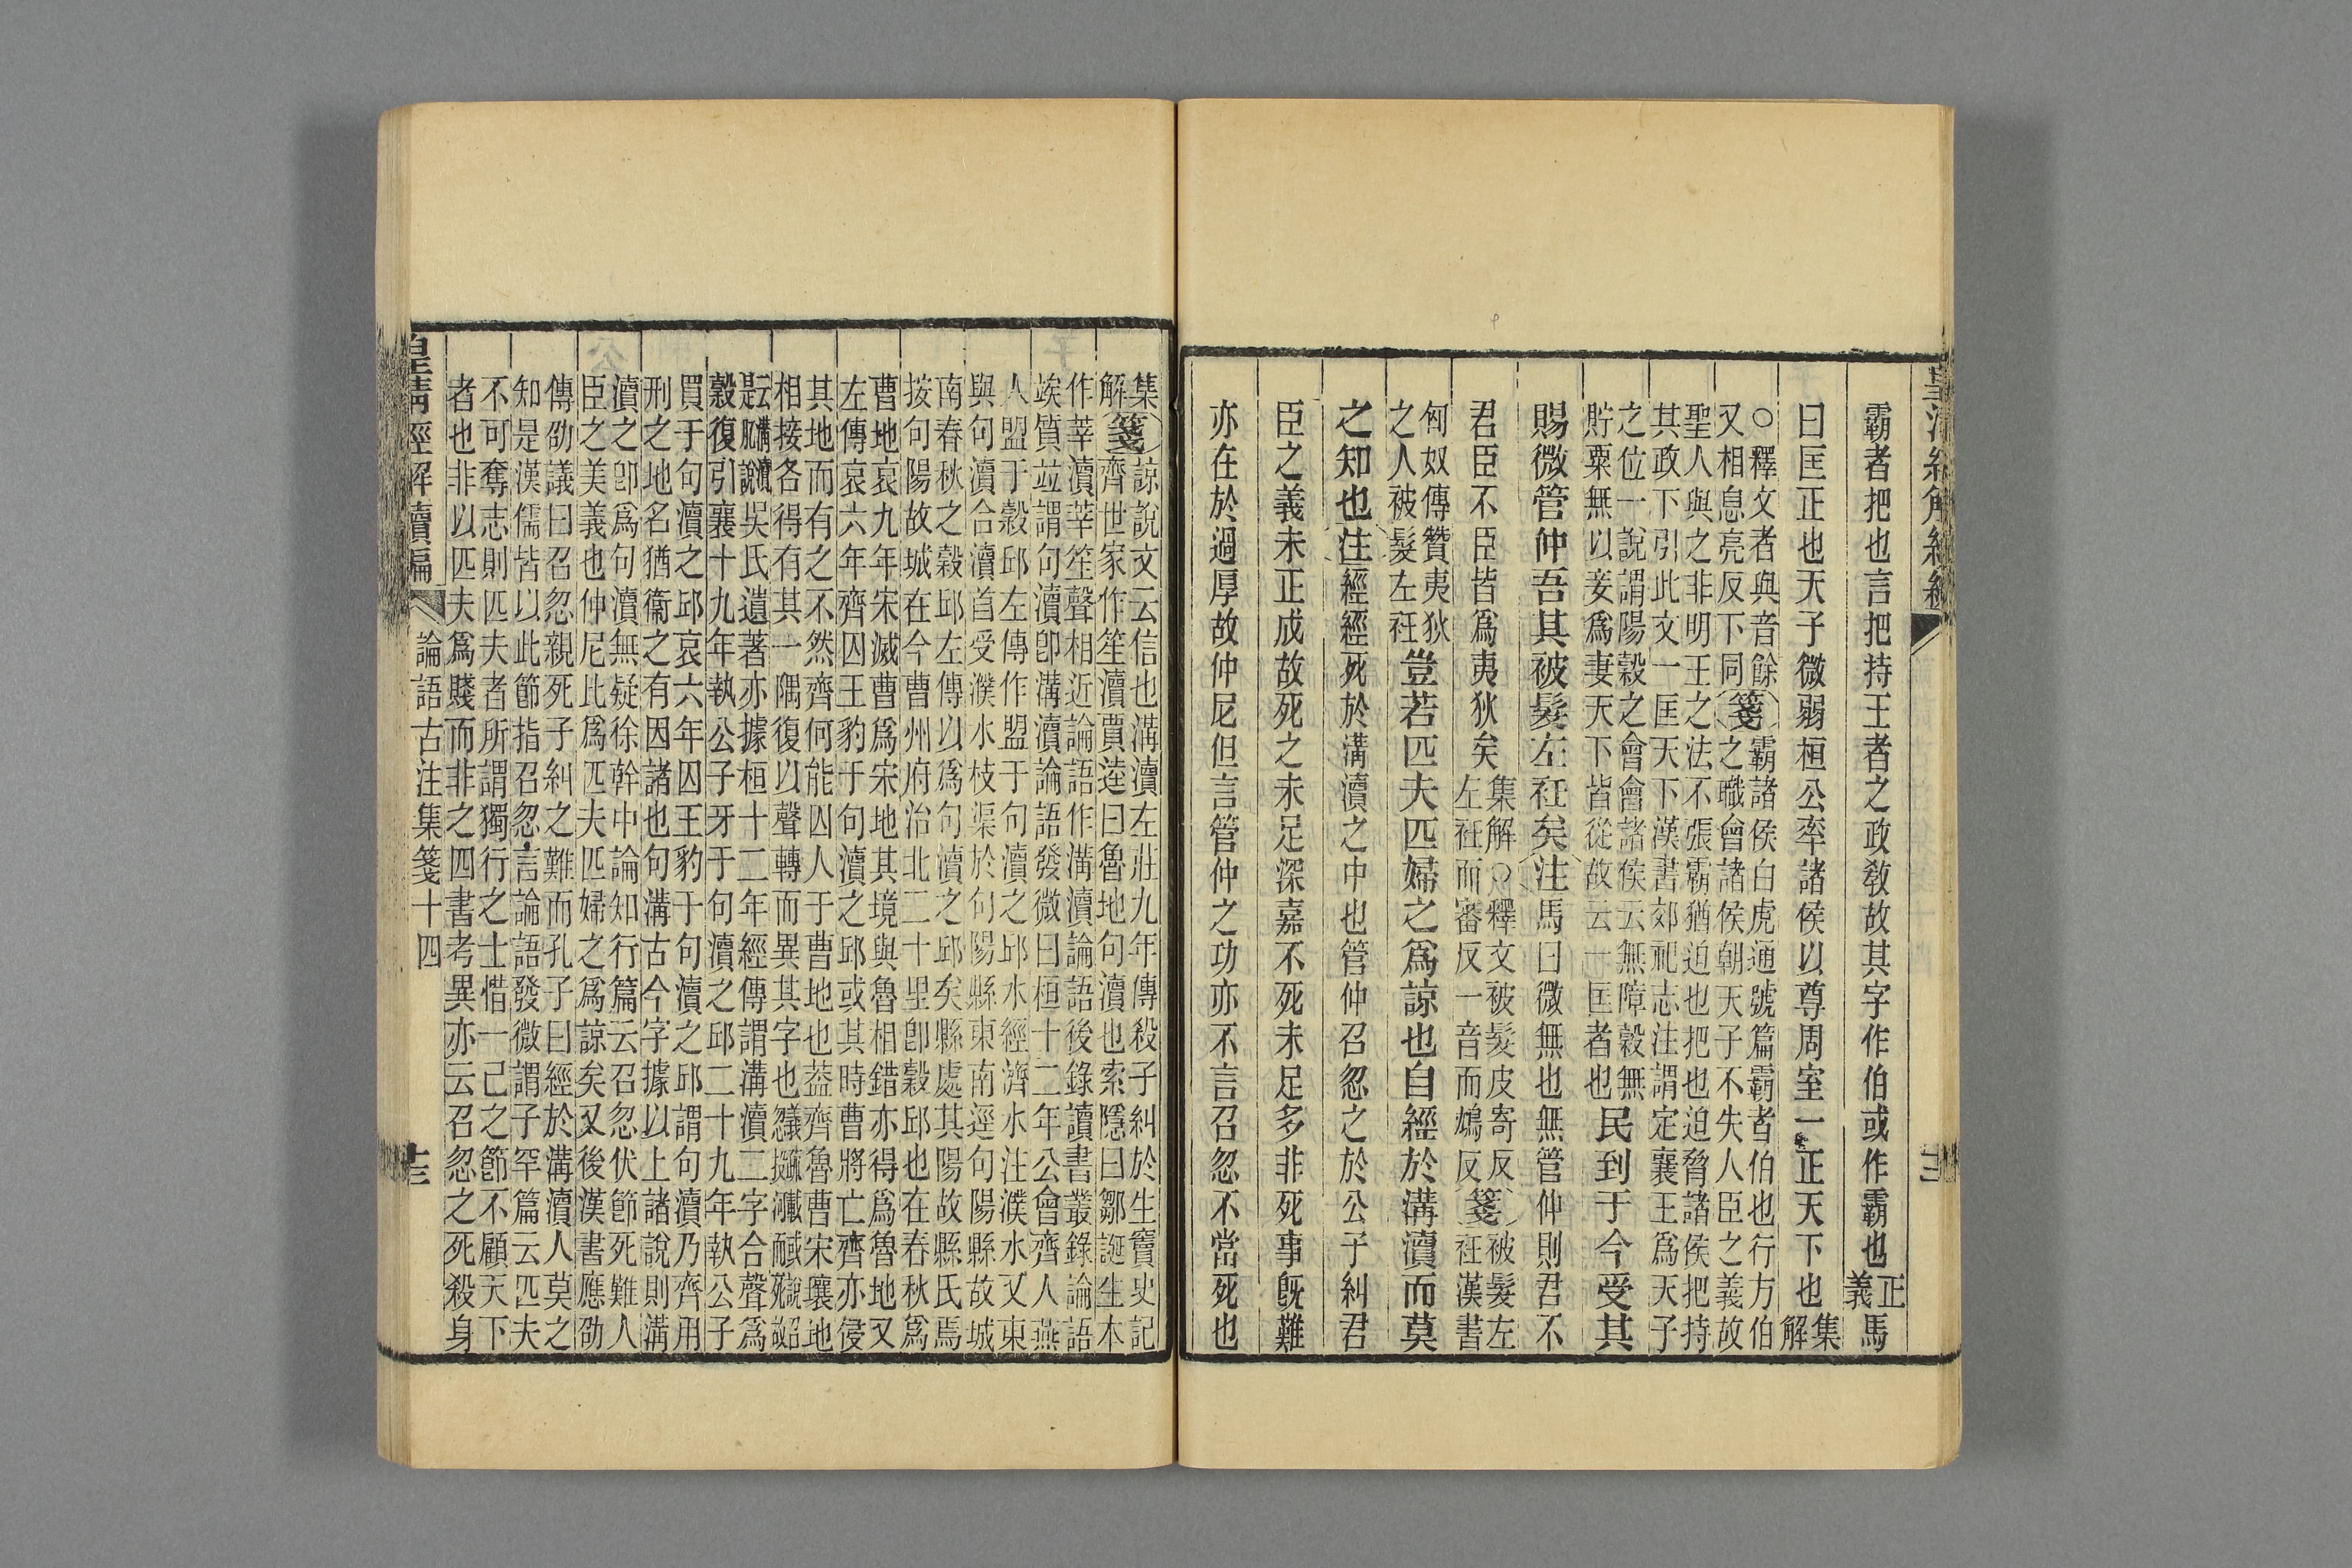 霸者把也言把持王者之政教故其字作伯或作霸也
正義
馬
曰匡正也天子微弱桓公率諸侯以尊周室一正天下也
集解
○釋文者與音餘
又相息亮反下同
箋
霸諸侯白虎通號篇霸者伯也行方伯
之職會諸侯朝天子不失人臣之義故
聖人與之非明王之法不張霸猶迫也把也迫脅諸侯把持
其政下引此文一匡天下漢書郊祀志注謂定襄王爲天子
之位一說謂陽穀之會會諸侯云無障穀無
貯粟無以妾爲妻天下皆從故云一匡者也
民到于今受其
賜微管仲吾其被髮左衽矣
注
馬曰微無也無管仲則君不
君臣不臣皆爲夷狄矣
集解○釋文被髮皮寄反
左衽而審反一音而鴆反
箋
被髮左
衽漢書
匈奴傳贊夷狄
之人被髮左衽
豈若匹夫匹婦之爲諒也自經於溝瀆而莫
之知也
注
經經死於溝瀆之中也管仲召忽之於公子糾君
臣之義未正成故死之未足深嘉不死未足多非死事旣難
亦在於過厚故仲尼但言管仲之功亦不言召忽不當死也
集解
箋
諒說文云信也溝瀆左莊九年傳殺子糾於生竇史記
齊世家作笙瀆賈逵曰魯地句瀆也索隱曰鄒誕生本
作莘瀆莘笙聲相近論語作溝瀆論語後錄讀書叢錄論語
竢質竝謂句瀆卽溝瀆論語發微曰桓十二年公會齊人燕
人盟于穀邱左傳作盟于句瀆之邱水經濟水注濮水又東
與句瀆合瀆首受濮水枝渠於句陽縣東南逕句陽縣故城
南春秋之穀邱左傳以爲句瀆之邱矣縣處其陽故縣氏焉
按句陽故城在今曹州府治北二十里卽穀邱也在春秋爲
曹地哀九年宋滅曹爲宋地其境與魯相錯亦得爲魯地又
左傳哀六年齊囚王豹于句瀆之邱或其時曹將亡齊亦侵
其地而有之不然齊何能囚人于曹地也葢齊魯曹宋壤地
相接各得有其一隅復以聲轉而異其字也
吳氏遺著亦據桓十二年經傳謂溝瀆二字合聲爲
穀復引襄十九年執公子牙于句瀆之邱二十九年執公子
買于句瀆之邱哀六年囚王豹于句瀆之邱謂句瀆乃齊用
刑之地名猶衞之有因諸也句溝古今字據以上諸說則溝
瀆之卽爲句瀆無疑徐幹中論知行篇云召忽伏節死難人
臣之美義也仲尼比爲匹夫匹婦之爲諒矣又後漢書應劭
傳劭議曰召忽親死子糾之難而孔子曰經於溝瀆人莫之
知是漢儒皆以此節指召忽言論語發微謂子罕篇云匹夫
不可奪志則匹夫者所謂獨行之士惜一己之節不顧天下
者也非以匹夫爲賤而非之四書考異亦云召忽之死殺身
皇清經解續編
論語古注集箋十四
十三